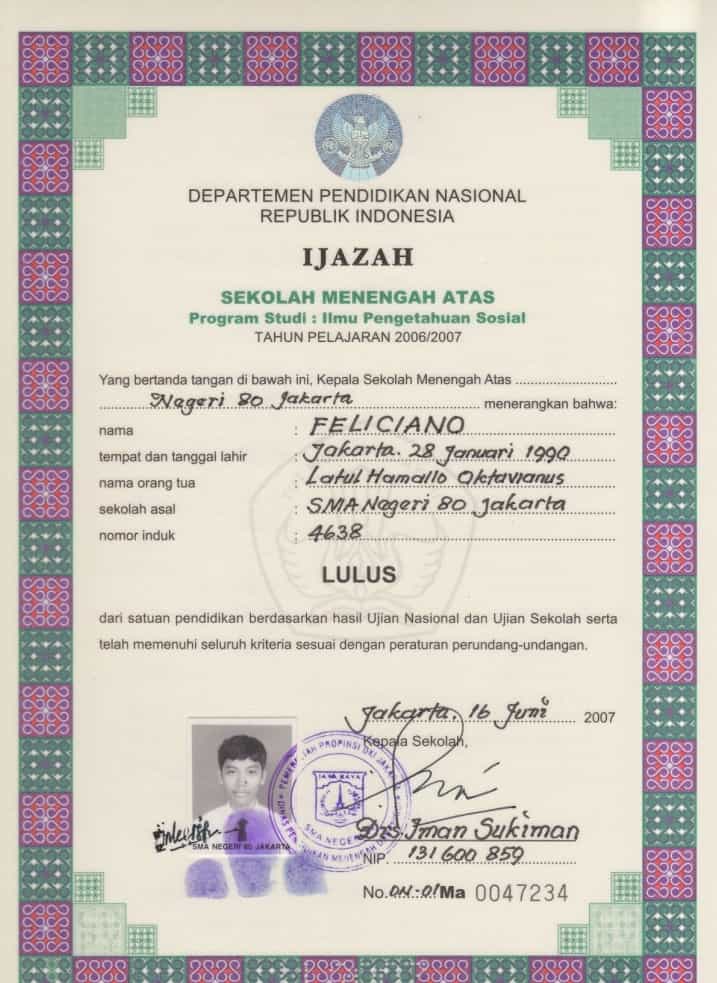 DEPARTEMEN PENDIDIKAN NASIONAL
REPUBLIK INDONESIA
IJAZAH
SEKOLAH MENENGAH ATAS
Program Studi : Ilmu Pengetahuan Sosial
TAHUN PELAJARAN 2006/2007
Yang bertanda tangan di bawah ini, Kepala Sekolah Menengah Atas
Negeri 80 Jakarta menerangkan bahwa:
nama : FELICIANO
tempat dan tanggal lahir : Jakarta. 28 Januari 1990
nama orang tua : Latul Hamallo Oktavianus
sekolah asal : SMA Negeri 80 Jakarta
nomor induk : 4638
LULUS
dari satuan pendidikan berdasarkan hasil Ujian Nasional dan Ujian Sekolah serta
telah memenuhi seluruh kriteria sesuai dengan peraturan perundang-undangan.
Jakarta. 16 Juni 2007
Kepala Sekolah,
PEMERINTAH PROPINSI DKI JAKARTA
JAYA RAYA
SMA NEGERI
DINAS PENDIDIKAN MENENGAH
Drs. Iman Sukiman
SMA NEGERI 80 JAKARTA
NIP. 131 600 859
No. DN-01 Ma 0047234